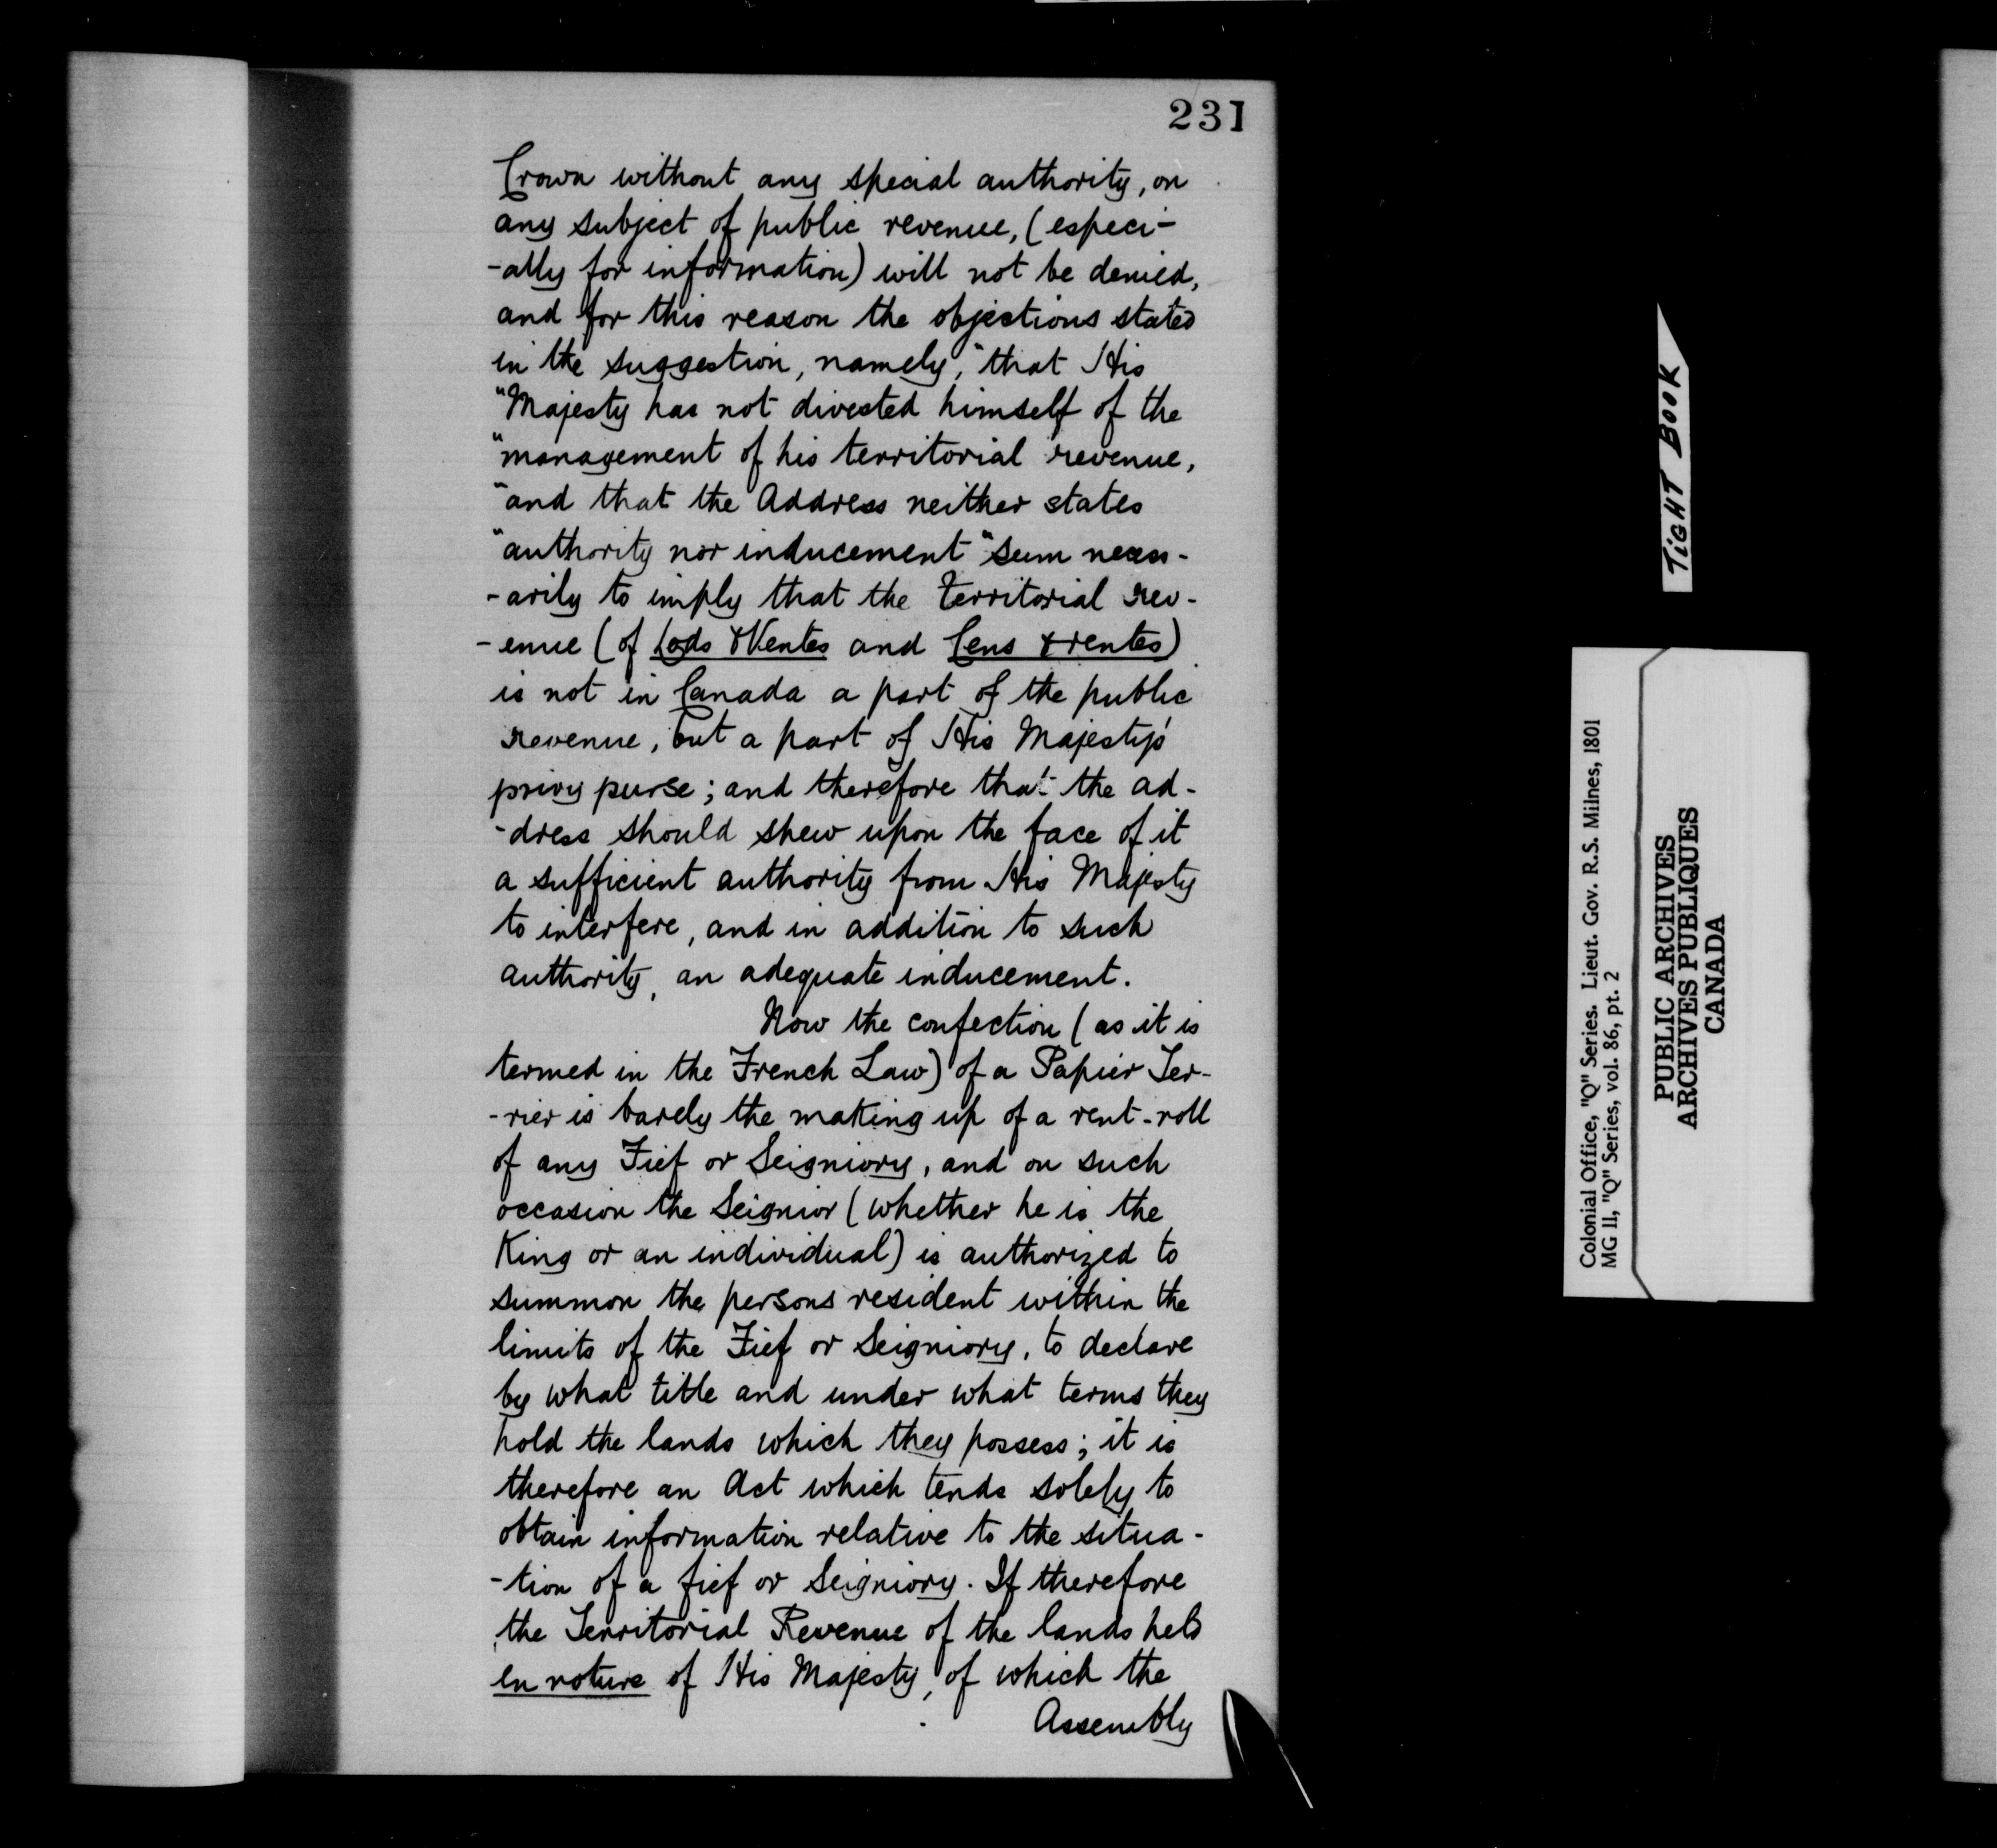 231
Crown without any special authority, on
any subject of public revenue, (especi-
-ally for information) will not be denied,
and for this reason the objections stated
in the suggestion, namely, "that His
"Majesty has not divested himself of the
"management of his territorial revenue,
"and that the Address neither states
"authority nor inducement" seem necess-
-arily to imply that the territorial rev-
-enue (of Lods & Ventes and Cens & rentes)
is not in Canada a part of the public
revenue, but a part of His Majesty's
privy purse; and therefore that the ad-
-dress should shew upon the face of it
a sufficient authority from His Majesty
to interfere, and in addition to such
authority, an adequate inducement.
Now the confection (as it is
termed in the French Law) of a Papier Ter-
-rier is barely the making up of a rent-roll
of any Fief or Seigniory, and on such
occasion the Seignior (whether he is the
King or an individual) is authorized to
summon the persons resident within the
limits of the Fief or Seigniory, to declare
by what title and under what terms they
hold the lands which they possess; it is
therefore an Act which tends solely to
obtain information relative to the situa-
-tion of a fief or Seigniory. If therefore
the Territorial Revenue of the lands held
en roture of His Majesty, of which the
Assembly
TIGHT BOOK
Colonial Office, "Q" Series. Lieut. Gov. R.S. Milnes, 1801
MG 11, "Q" Series, vol. 86, pt. 2
PUBLIC ARCHIVES
ARCHIVES PUBLIQUES
CANADA